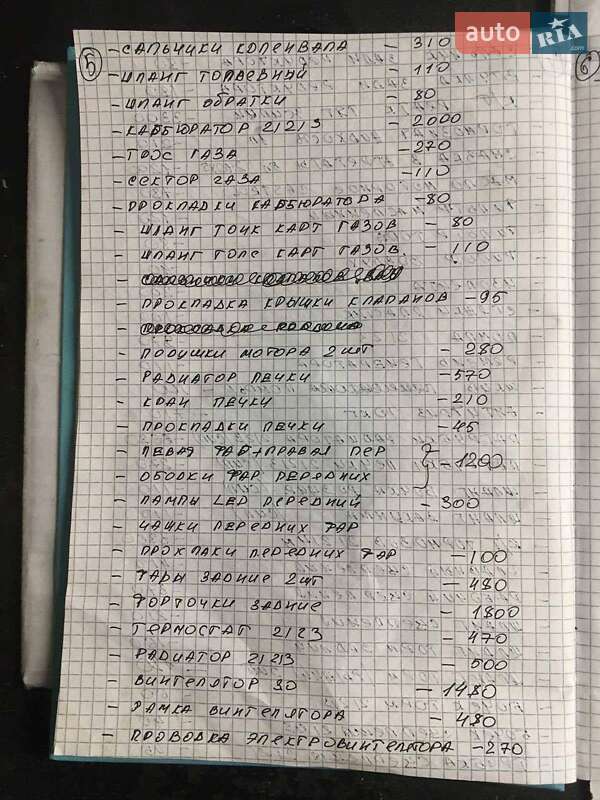 auto RIA .com
5
6
- САЛЬНИКИ КОЛЕНВАЛА - 310
- ШЛАНГ ТОПЛЕВНИЙ - 110
- ШЛАНГ ОБРАТКИ - 80
- КАБЮРАТОР 21213 - 2000
- ТРОС ГАЗА - 270
- СЕКТОР ГАЗА - 110
- ПРОКЛАДКИ КАБЮРАТОРА - 80
- ШЛАНГ ТОНК КАРТ ГАЗОВ - 80
- ШЛАНГ ТОЛС КАРТ ГАЗОВ - 110
- ПРОКЛАДКА КРЫШКИ КЛАПАНОВ - 95
- ПОДУШКИ МОТОРА 2 ШТ - 280
- РАДИАТОР ПЕЧКИ - 570
- КРАН ПЕЧКИ - 210
- ПРОКЛАДКИ ПЕЧКИ - 45
- ЛЕВАЯ ФАР + ПРАВАЯ ПЕР
- ОБОДКИ ФАР ПЕРЕДНИХ } - 1200
- ЛАМПЫ LED ПЕРЕДНИЙ - 300
- ЧАШКИ ПЕРЕДНИХ ФАР
- ПРОКЛАКИ ПЕРЕДНИХ ФАР - 100
- ФАРЫ ЗАДНИЕ 2 ШТ - 480
- ФОРТОЧКИ ЗАДНИЕ - 1800
- ТЕРМОСТАТ 21213 - 470
- РАДИАТОР 21213 - 500
- ВИНТЕЛЯТОР ЭО - 1480
- РАМКА ВИНТЕЛЯТОРА - 480
- ПРОВОДКА ЭЛЕКТРОВИНТЕЛЯТОРА - 270